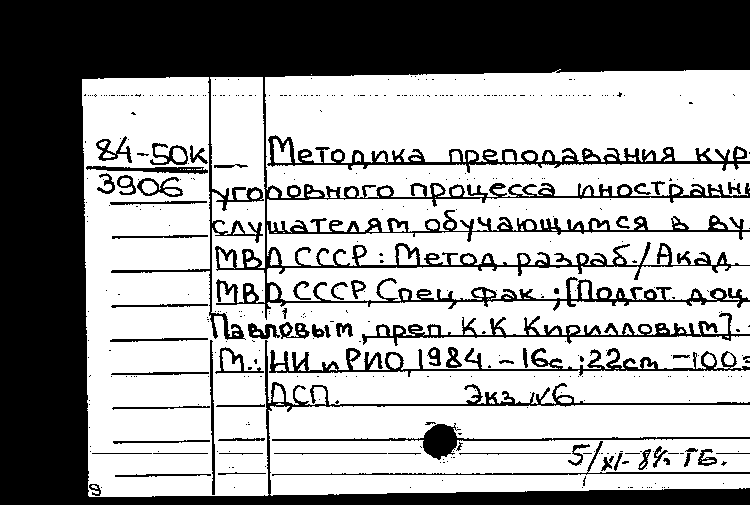 84-50к
3906
Методика преподавания кур
уголовного процесса иностранны
слушателям, обучающимся в ву
МВД СССР: Метод. разраб./Акад.
МВД СССР, Спец. фак.; [Подгот. доц.
Павловым, преп. К.К Кирилловым].
М.: НИ и РИО, 1984. - 16с.; 22cm - 100э
ДСП. Экз. №6.
5/XI- 84г. ТБ.